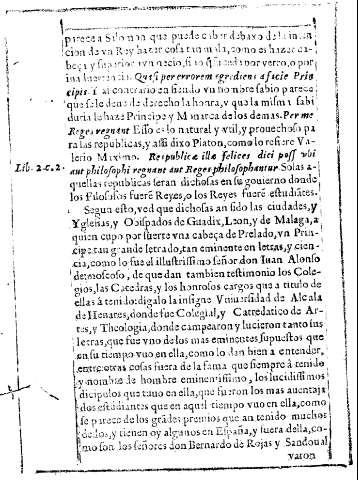 parece a Salomon que puede caber debaxo de la inten
cion de vn Rey hazer cosa tan mala, como es hazer ca-
beça y superior vn necio, si no que sea por yerro, o por
ina Quasi per errorem egrediens a facie Prin
cipis. Y al contrario en siendo vn hombre sabio parece
que se le deue de derecho la honra, y que la misma sabi
duria le haze Principe y Monarca de los demas. Per me
Reges regnant Esso es lo natural y vtil, y prouechoso pa
ra las republicas, y assi dixo Platon, como lo refiere Va-
Lib. 2. c. 2. lerio Maximo. Respublicæ illæ felices dici poss vbi
aut philosophi regnant aut Reges philosophantur Solas a-
quellas republicas seran dichosas en su gouierno donde
los Filosofos fuerẽ Reyes, o los Reyes fuerẽ estudiãtes.
Segun esto, ved que dichosas an sido las ciudades, y
Yglesias, y Obispados de Guadix, Leon, y de Malaga, a
quien cupo por suerte vna cabeça de Prelado, vn Prin-
cipe tan grande letrado, tan eminente en letras, y cien-
cia, como lo fue el illustrissimo señor don Iuan Alonso
de moscoso, de que dan tambien testimonio los Cole-
gios, las Catedras, y los honrosos cargos que a titulo de
ellas à tenido: digalo la insigne Vniuersidad de Alcala
de Henares, donde fue Colegial, y Catredatico de Ar-
tes, y Theologia, donde campearon y lucieron tanto sus
letras, que fue vno de los mas eminentes supuestos que
en su tiempo vuo en ella, como lo dan bien a entender,
entre otras cosas fuera de la fama que siempre à tenido
y nombre de hombre eminentissimo, los lucidissimos
dicipulos que tuuo en ella, que fueron los mas auentaja
dos estudiantes que en aquel tiempo vuo en ella, como
se parece de los grãdes premios que an tenido muchos
dellos, y tienen oy algunos en España, y fuera della, co-
mo son los señores don Bernardo de Rojas y Sandoual
varon